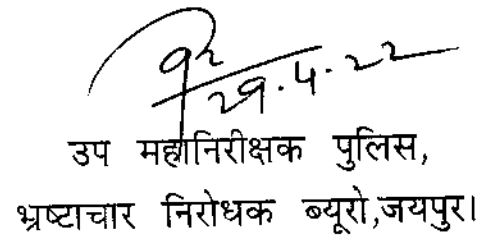 29.4.22
उप महानिरीक्षक पुलिस,
भ्रष्टाचार निरोधक ब्यूरो,जयपुर।